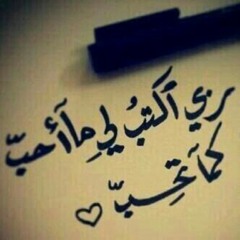 ربي ٱكتبُ لي مآ أحبّ
كمآ تحِبّ